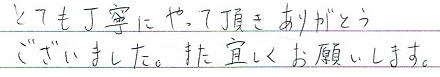 とても丁寧にやって頂きありがとう
ございました。また宜しくお願いします。